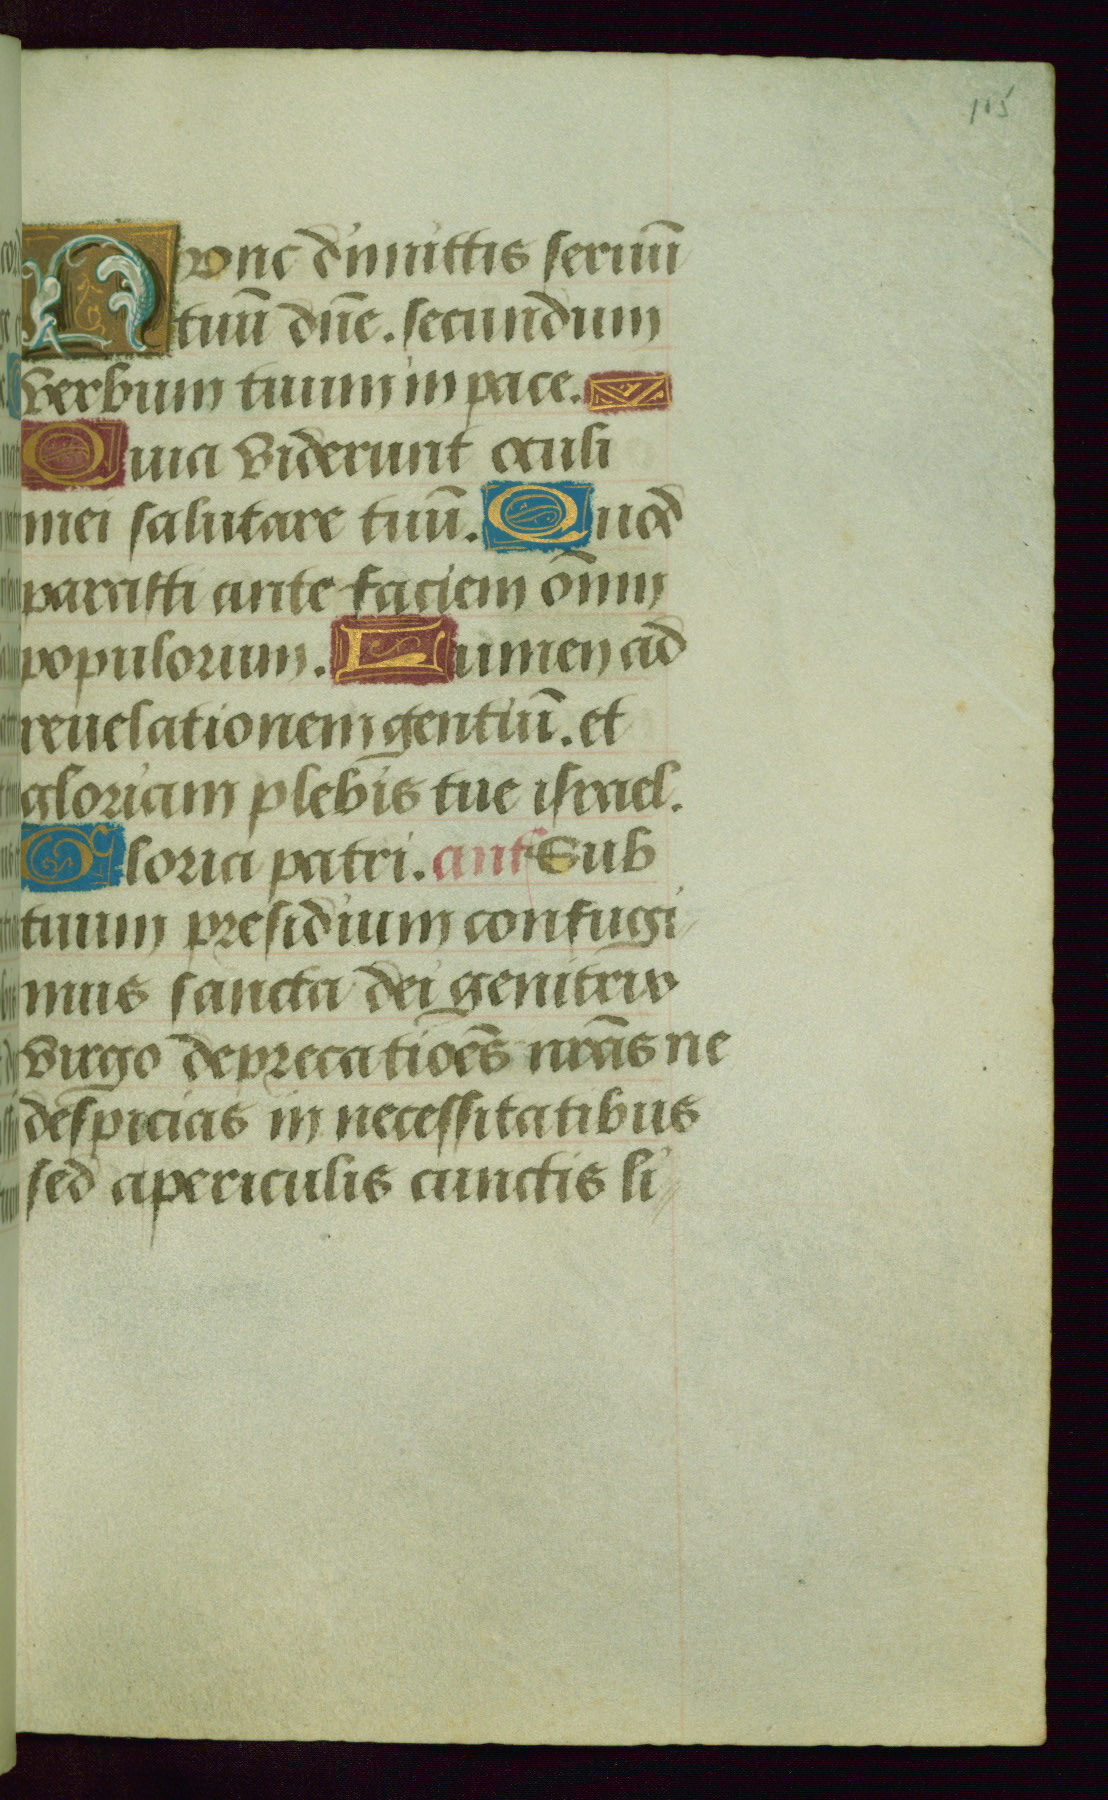 105
Nvnc dimittis seruū
tuū dn̄e. secundum
verbum tuum in pace.
Quia viderunt oculi
mei salutare tuū. Quod
parasti ante faciem om̄im
populorum. Lumen ad
reuelationem gentiū. et
gloriam plebis tue israel.
Gloria patri. ant Sub
tuum presidium confugi
mus sancta dei genitrix
virgo deprecatiōes nrās ne
despicias in necessitatibus
sed a periculis cunctis li